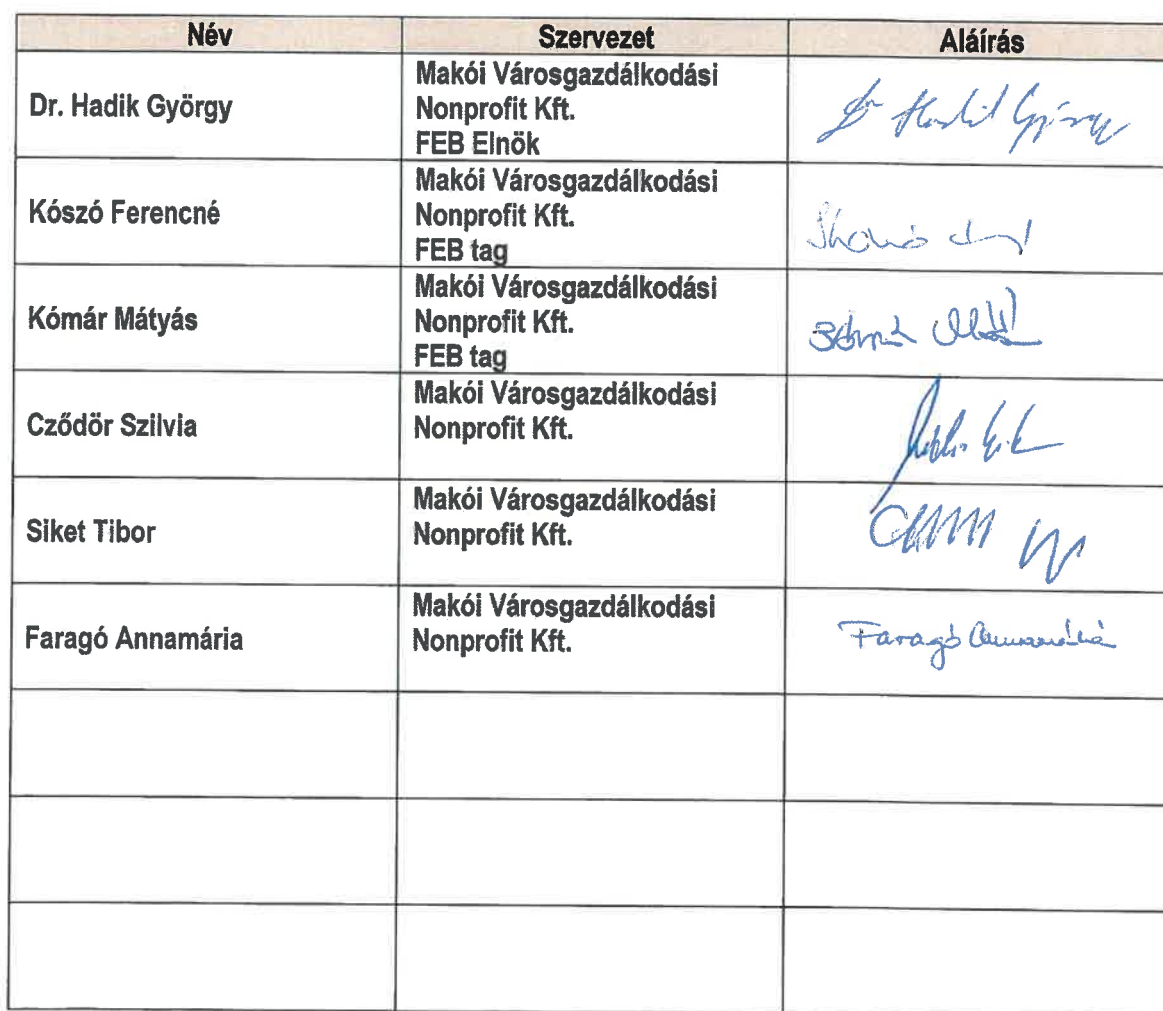 Név Szervezet Aláírás
Dr. Hadik György
Makói Városgazdálkodási
Nonprofit Kft.
FEB Elnök
Dr Hadik György
Kószó Ferencné
Makói Városgazdálkodási
Nonprofit Kft.
FEB tag
Kómár Mátyás
Makói Városgazdálkodási
Nonprofit Kft.
FEB tag
Cződör Szilvia
Makói Városgazdálkodási
Nonprofit Kft.
Siket Tibor
Makói Városgazdálkodási
Nonprofit Kft.
Faragó Annamária
Makói Városgazdálkodási
Nonprofit Kft.
Faragó Annamária